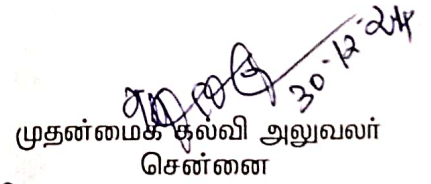 30-12-24
முதன்மைக் கல்வி அலுவலர்
சென்னை